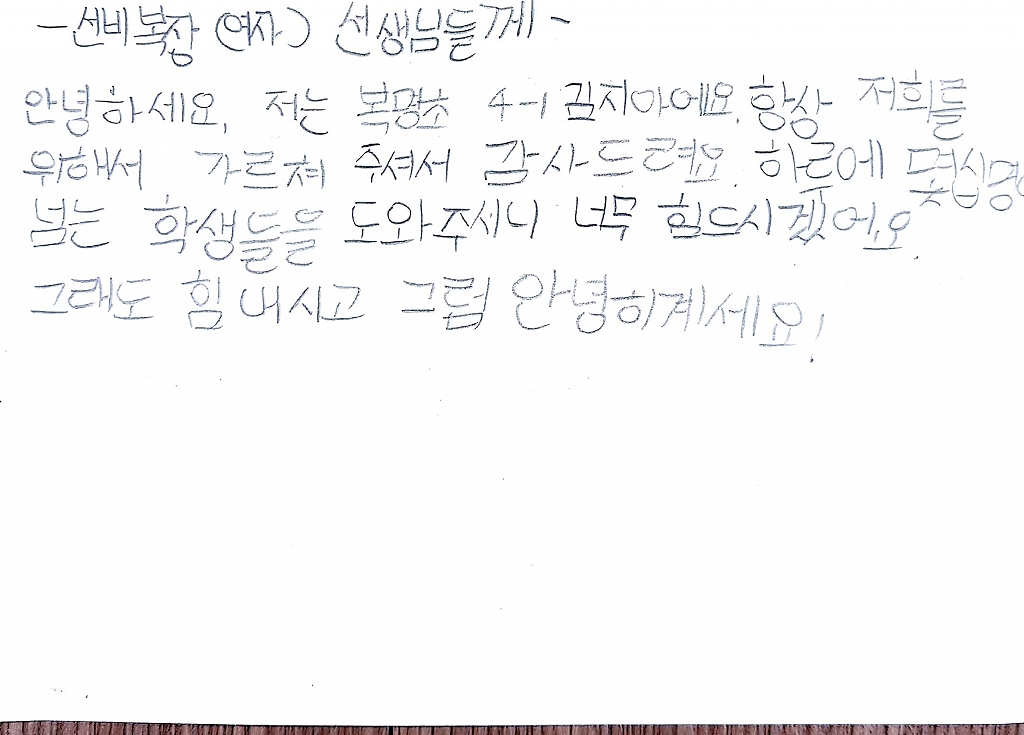 -선비복장 (여자) 선생님들께-
안녕하세요, 저는 복명초 4-1 김지아에요. 항상 저희를
위해서 가르쳐 주셔서 감사드려요. 하루에 몇십명
넘는 학생들을 도와주시니 너무 힘드시겠어요.
그래도 힘내시고 그럼 안녕히계세요!